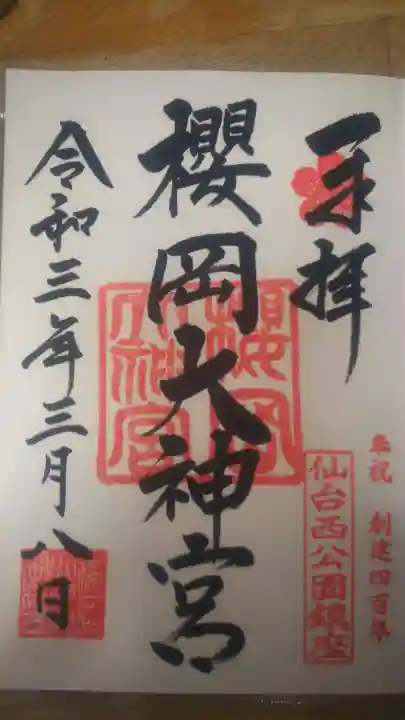 奉拝
奉祝 創建四百年
仙台西公園鎮座
櫻岡大神宮
櫻岡
大神宮
令和三年三月八日